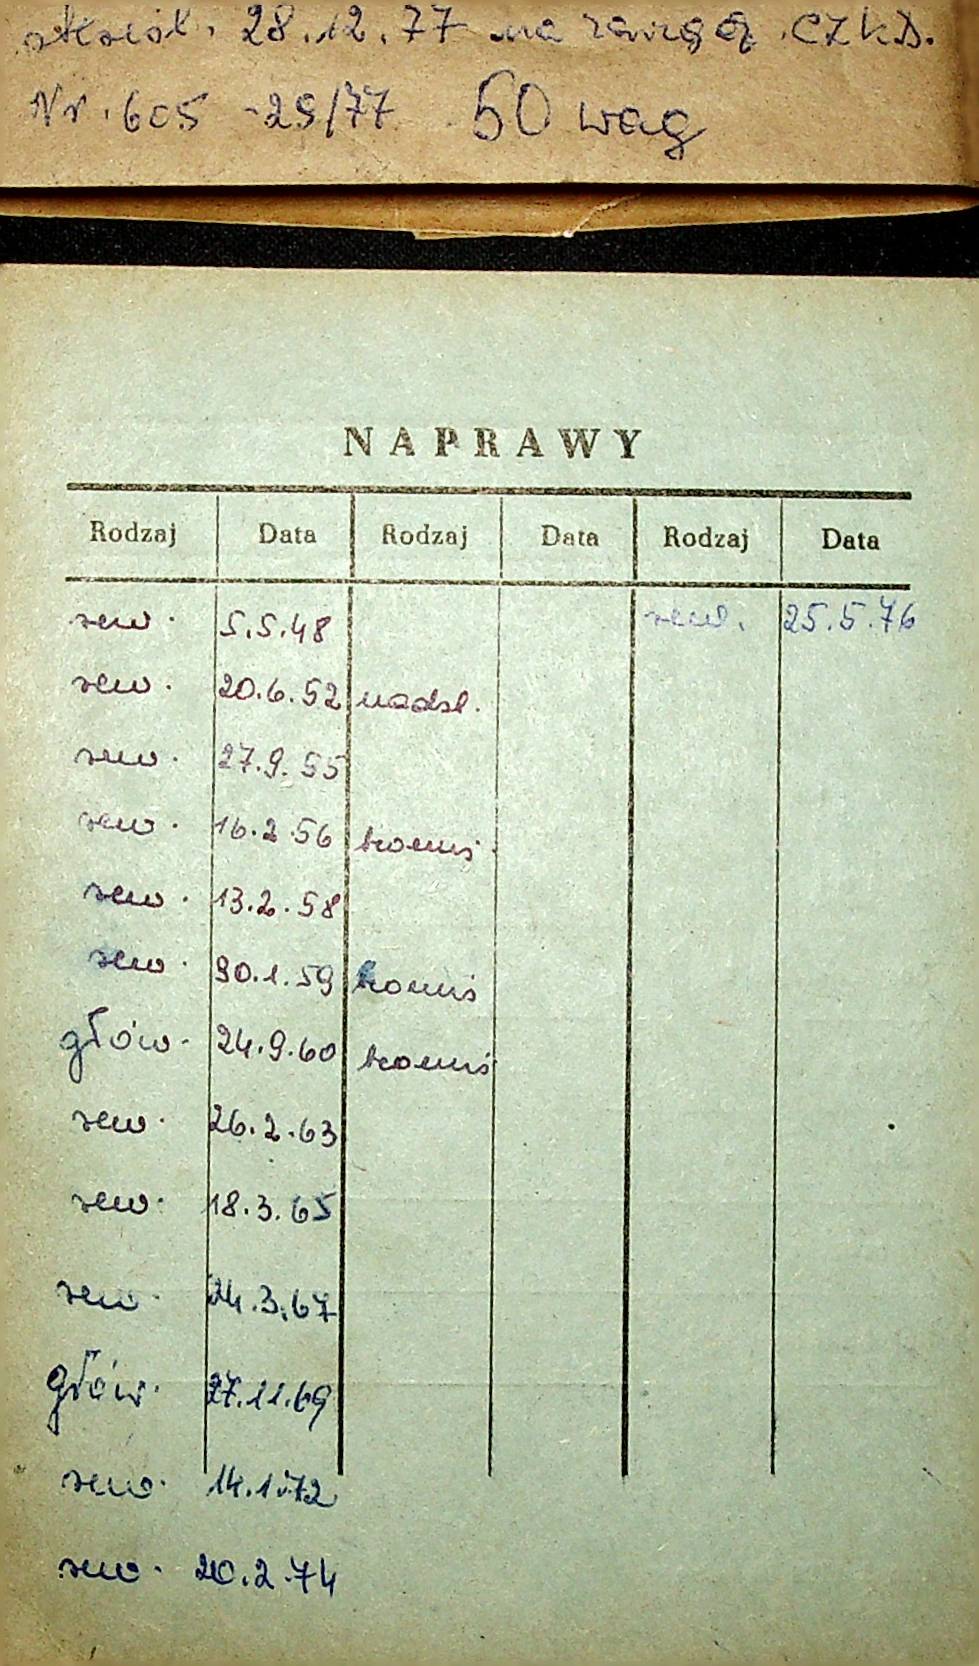 28.12.77 na CZKD.
Nr. 605 -29/77 50 wag
NAPRAWY
Rodzaj Data Rodzaj Data Rodzaj Data
rew. 5.5.48 rew. 25.5.76
rew. 20.6.52 nadzl.
rew. 27.9.55
rew. 16.2.56
rew. 13.2.58
rew. 30.1.59
głów. 24.9.60
rew. 26.2.63
rew. 18.3.65
rew. 24.3.67
głów. 27.11.69
rew. 14.1.72
rew. 20.2.74